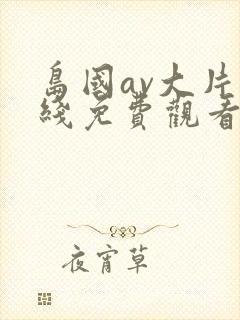 島國av大片
綫免費觀看
夜宵草